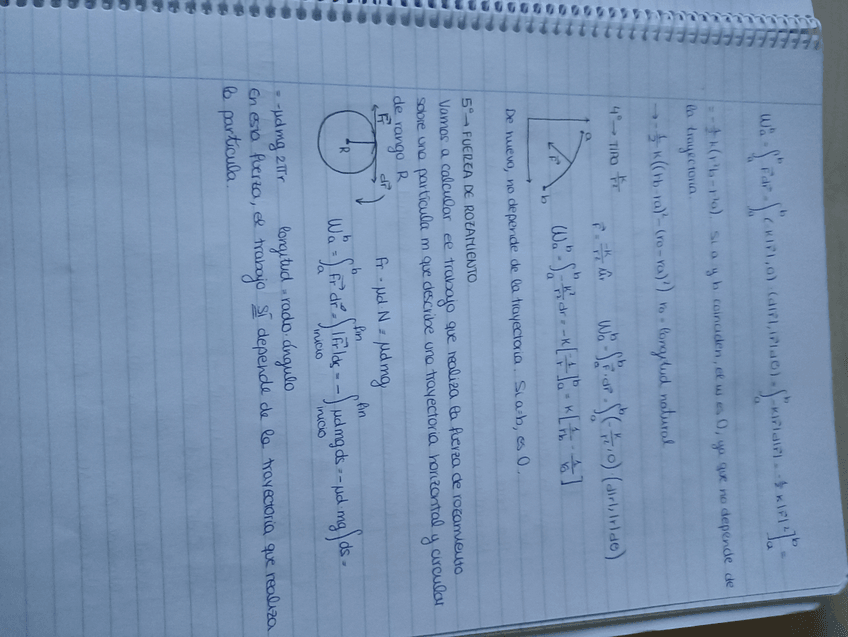 Wₐᵇ = ∫ₐᵇ F⃗ dr⃗ = ∫ₐᵇ (-K|r⃗|, 0) · (d|r⃗|, |r⃗|dθ) = ∫ₐᵇ -K|r⃗| d|r⃗| = -½ K |r⃗|²]ₐᵇ =
= -½ K (r²b - r²a). Si a y b coinciden, el W es 0, ya que no depende de
la trayectoria.
→ -½ K ((rb - ro)² - (ra - ro)²) ro = longitud natural
4º → TIPO K/r²
F⃗ = -K/r² ûr Wₐᵇ = ∫ₐᵇ F⃗ · dr⃗ = ∫ₐᵇ (-K/r², 0) (d|r|, |r|dθ)
a
r
b
Wₐᵇ = ∫ₐᵇ -K/r² dr = -K [-1/r]ₐᵇ = K [1/rb - 1/ra]
De nuevo, no depende de la trayectoria. Si a=b, es 0.
5º → FUERZA DE ROZAMIENTO
Vamos a calcular el trabajo que realiza la fuerza de rozamiento
sobre una partícula m que describe una trayectoria horizontal y circular
de rango R
Fr⃗ dr⃗
R
Fr = μd N = μdmg
Wₐᵇ = ∫ₐᵇ Fr⃗ dr⃗ = ∫ inicio fin |Fr⃗| ds = -∫ inicio fin μdmg ds = -μd·mg ∫ds =
= -μdmg 2πr longitud = radio · ángulo
En esa fuerza, el trabajo SÍ depende de la trayectoria que realiza
la partícula.